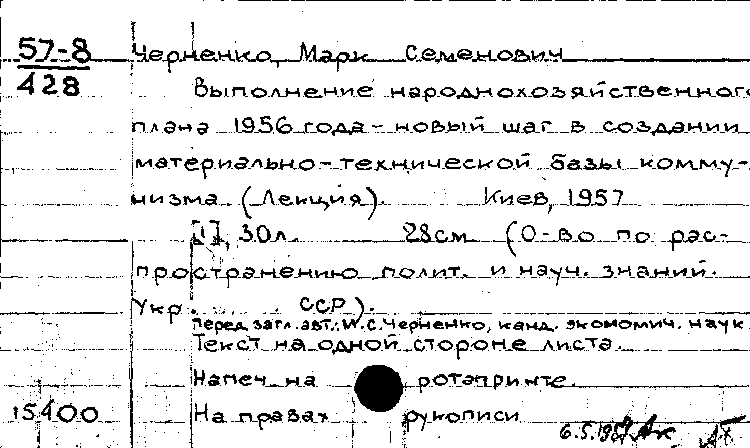 57-8
428
Черненко, Марк Семенович
Выполнение народнохозяйственного
плана 1956 года - новый шаг в создании
материально-технической базы комму-
низма. (Лекция). Киев, 1957
[1], 30л. 28см. (О-во по рас-
пространению полит. и науч. знаний.
Укр. ССР).
Перед загл. авт.: М.С.Черненко, канд. экономич. наук
Текст на одной стороне листа.
Напеч. на ротапринте.
15400 На правах рукописи
6.5.1957